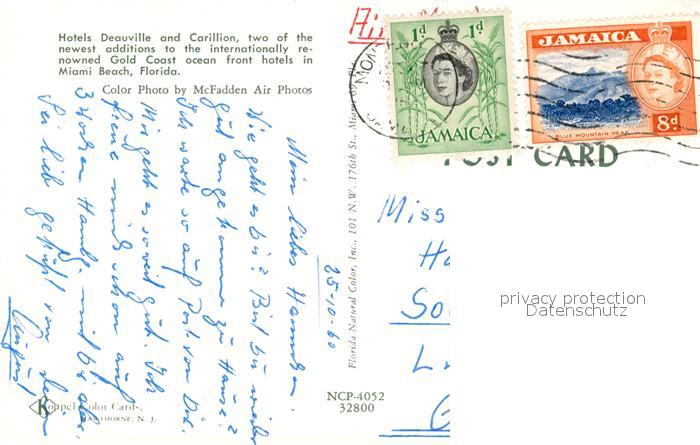 Hotels Deauville and Carillion, two of the
newest additions to the internationally re-
nowned Gold Coast ocean front hotels in
Miami Beach, Florida.
Color Photo by McFadden Air Photos
25-10-60
Mein liebes Hannchen.
Wie geht es dir? Bist du wieder
gut angekommen zu Hause?
Ich warte so auf Post von Dir.
Mir geht es soweit gut. Ich
freue mich schon auf
3 Wochen Hambg. mit Dir aber.
Sei lieb geküßt von dein
August
Koppel Color Cards,
HAWTHORNE, N. J.
Florida Natural Color, Inc., 101 N.W. 176th St., Miami
NCP-4052
32800
Air
1d 1d
JAMAICA
JAMAICA
BLUE MOUNTAIN PEAK
8d
POST CARD
Miss
privacy protection
Datenschutz